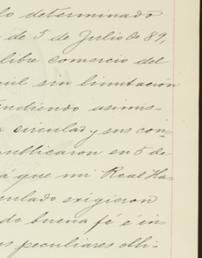 lo determinado
de 5 de Julio de 89,
libre comercio del
sin limitación
endiendo asimis-
circular y sus con-
publicaron en 5 de
que mi Real Ha-
culado exigieron
de buena fé é in-
s peculiares obli-